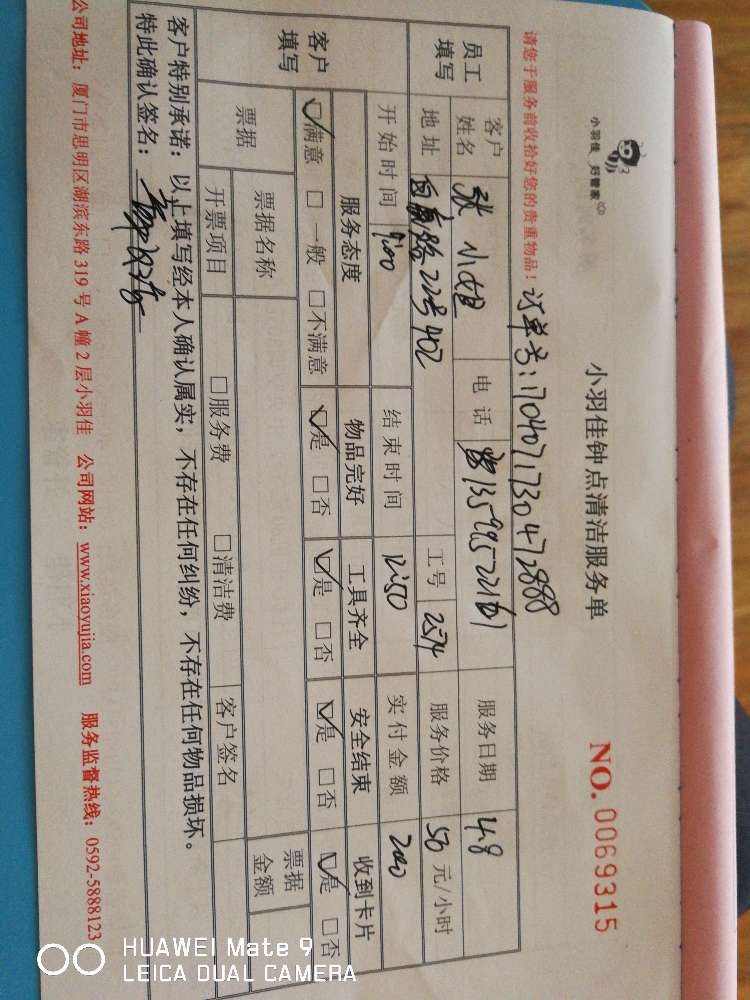 小羽佳 好管家
小羽佳钟点清洁服务单
NO. 0069315
请您于服务前收拾好您的贵重物品！
订单号：170407173047288 8
员工填写
客户姓名 张小姐 电话 服务日期 4.8
地址 22号402 工号 2574 服务价格 50 元/小时
开始时间 9:00 结束时间 12:50 实付金额 200
客户填写
服务态度 物品完好 工具齐全 安全结束 收到卡片
☑满意 □一般 □不满意 ☑是 □否 ☑是 □否 ☑是 □否 ☑是 □否
票据 票据名称 票据金额
开票项目 □服务费 □清洁费 客户签名
客户特别承诺：以上填写经本人确认属实，不存在任何纠纷，不存在任何物品损坏。
特此确认签名：
公司地址：厦门市思明区湖滨东路 319 号 A 幢 2 层小羽佳 公司网站：www.xiaoyujia.com 服务监督热线：0592-5888123
HUAWEI Mate 9
LEICA DUAL CAMERA